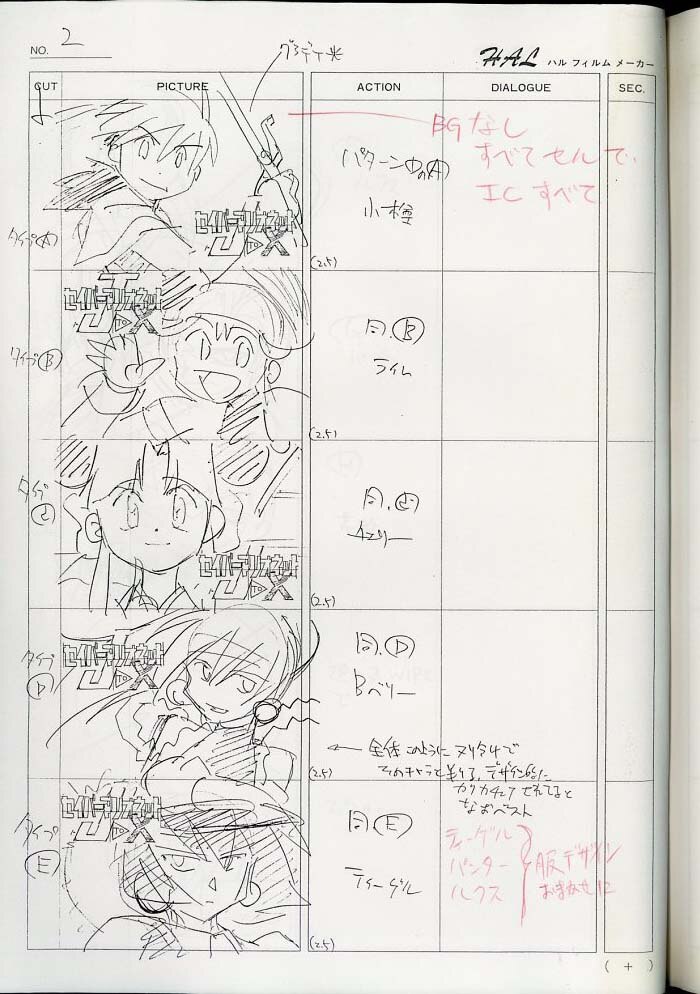 NO. 2
HAL ハル フィルム メーカー
CUT
PICTURE
ACTION
DIALOGUE
SEC.
BGなし
すべてセルで、
すべて
タイプ(A)
セイバーマリオネット
J TO X
パターン中の(A)
小樽
(2.5)
タイプ(B)
セイバーマリオネット
J TO X
同.(B)
ライム
(2.5)
タイプ
セイバーマリオネット
J TO X
同.
チェリー
(2.5)
タイプ
(D)
セイバーマリオネット
J TO X
同.(D)
Bベリー
(2.5)
← 全体 このように ヌリタシで
なおベスト
タイプ
(E)
セイバーマリオネット
J TO X
同.(E)
ティーゲル
(2.5)
ティーゲル
パンター
ルクス
服デザイン
おまかせに
( + )